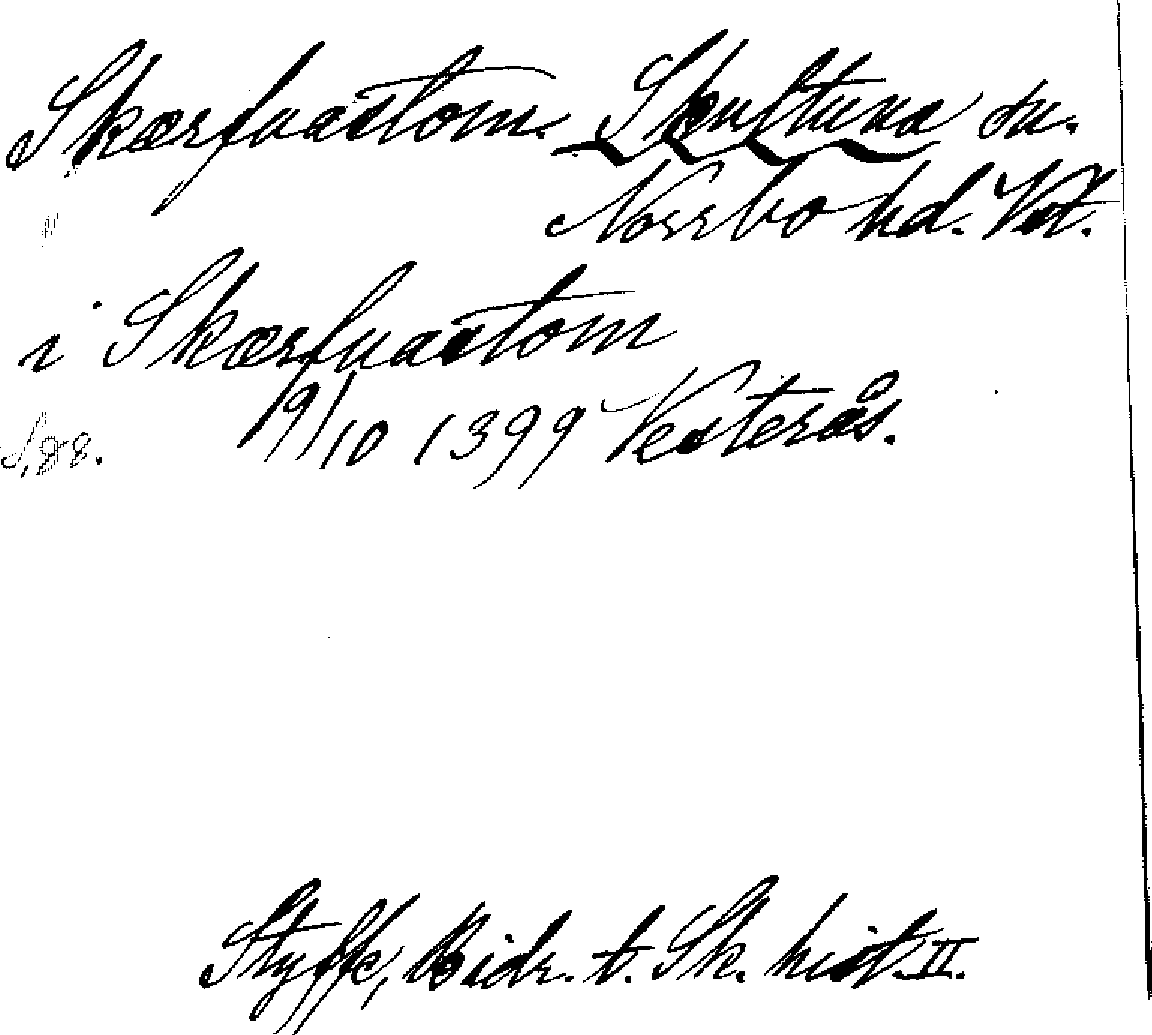 Skærfuastom. Skultuna sn.
Norrbo hd. Vst.
i Skærfuastom
19/10 1399 Vesterås.
S. 98.
Styffe, Bidr. t. Sk. hist. II.